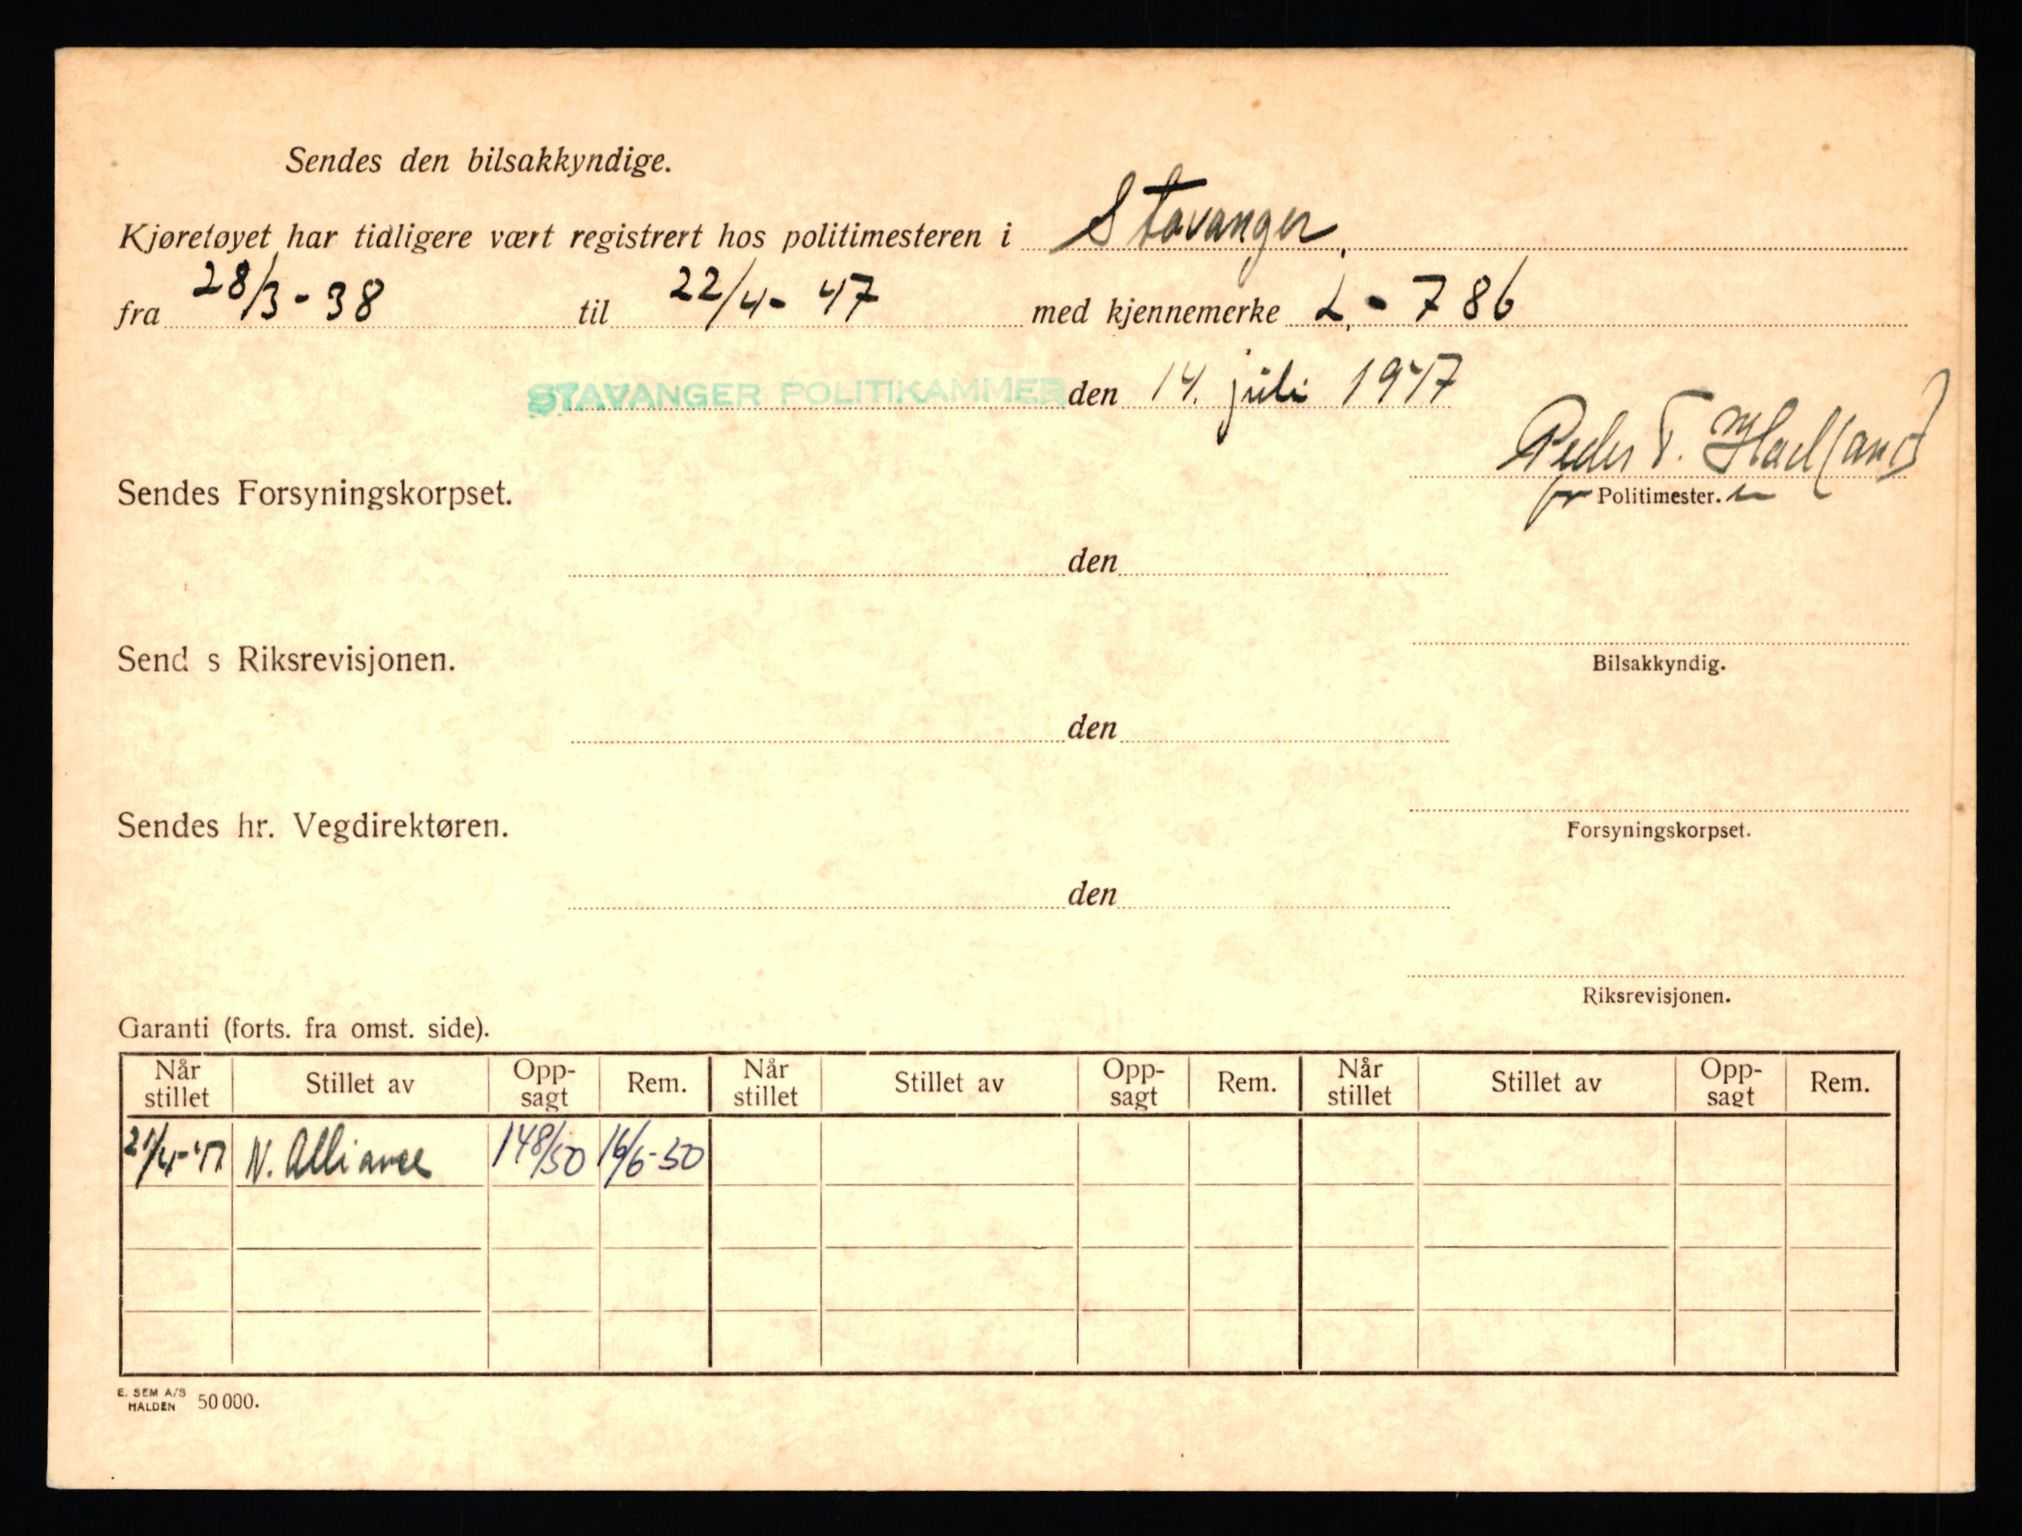 Sendes den bilsakkyndige.
Kjøretøyet har tidligere vært registrert hos politimesteren i Stavanger.
fra 28/3 - 38 til 22/4 - 47 med kjennemerke L. - 786
STAVANGER POLITIKAMMER den 14. juli 1947
Peder T. Hadland
Sendes Forsyningskorpset.
for Politimester.en
den
Send s Riksrevisjonen.
Bilsakkyndig.
den
Sendes hr. Vegdirektøren.
Forsyningskorpset.
den
Riksrevisjonen.
Garanti (forts. fra omst. side).
Når stillet Stillet av Opp-sagt Rem. Når stillet Stillet av Opp-sagt Rem. Når stillet Stillet av Opp-sagt Rem.
21/4-47 N. Alliance 148/50 16/6-50
E. SEM A/S
HALDEN 50 000.